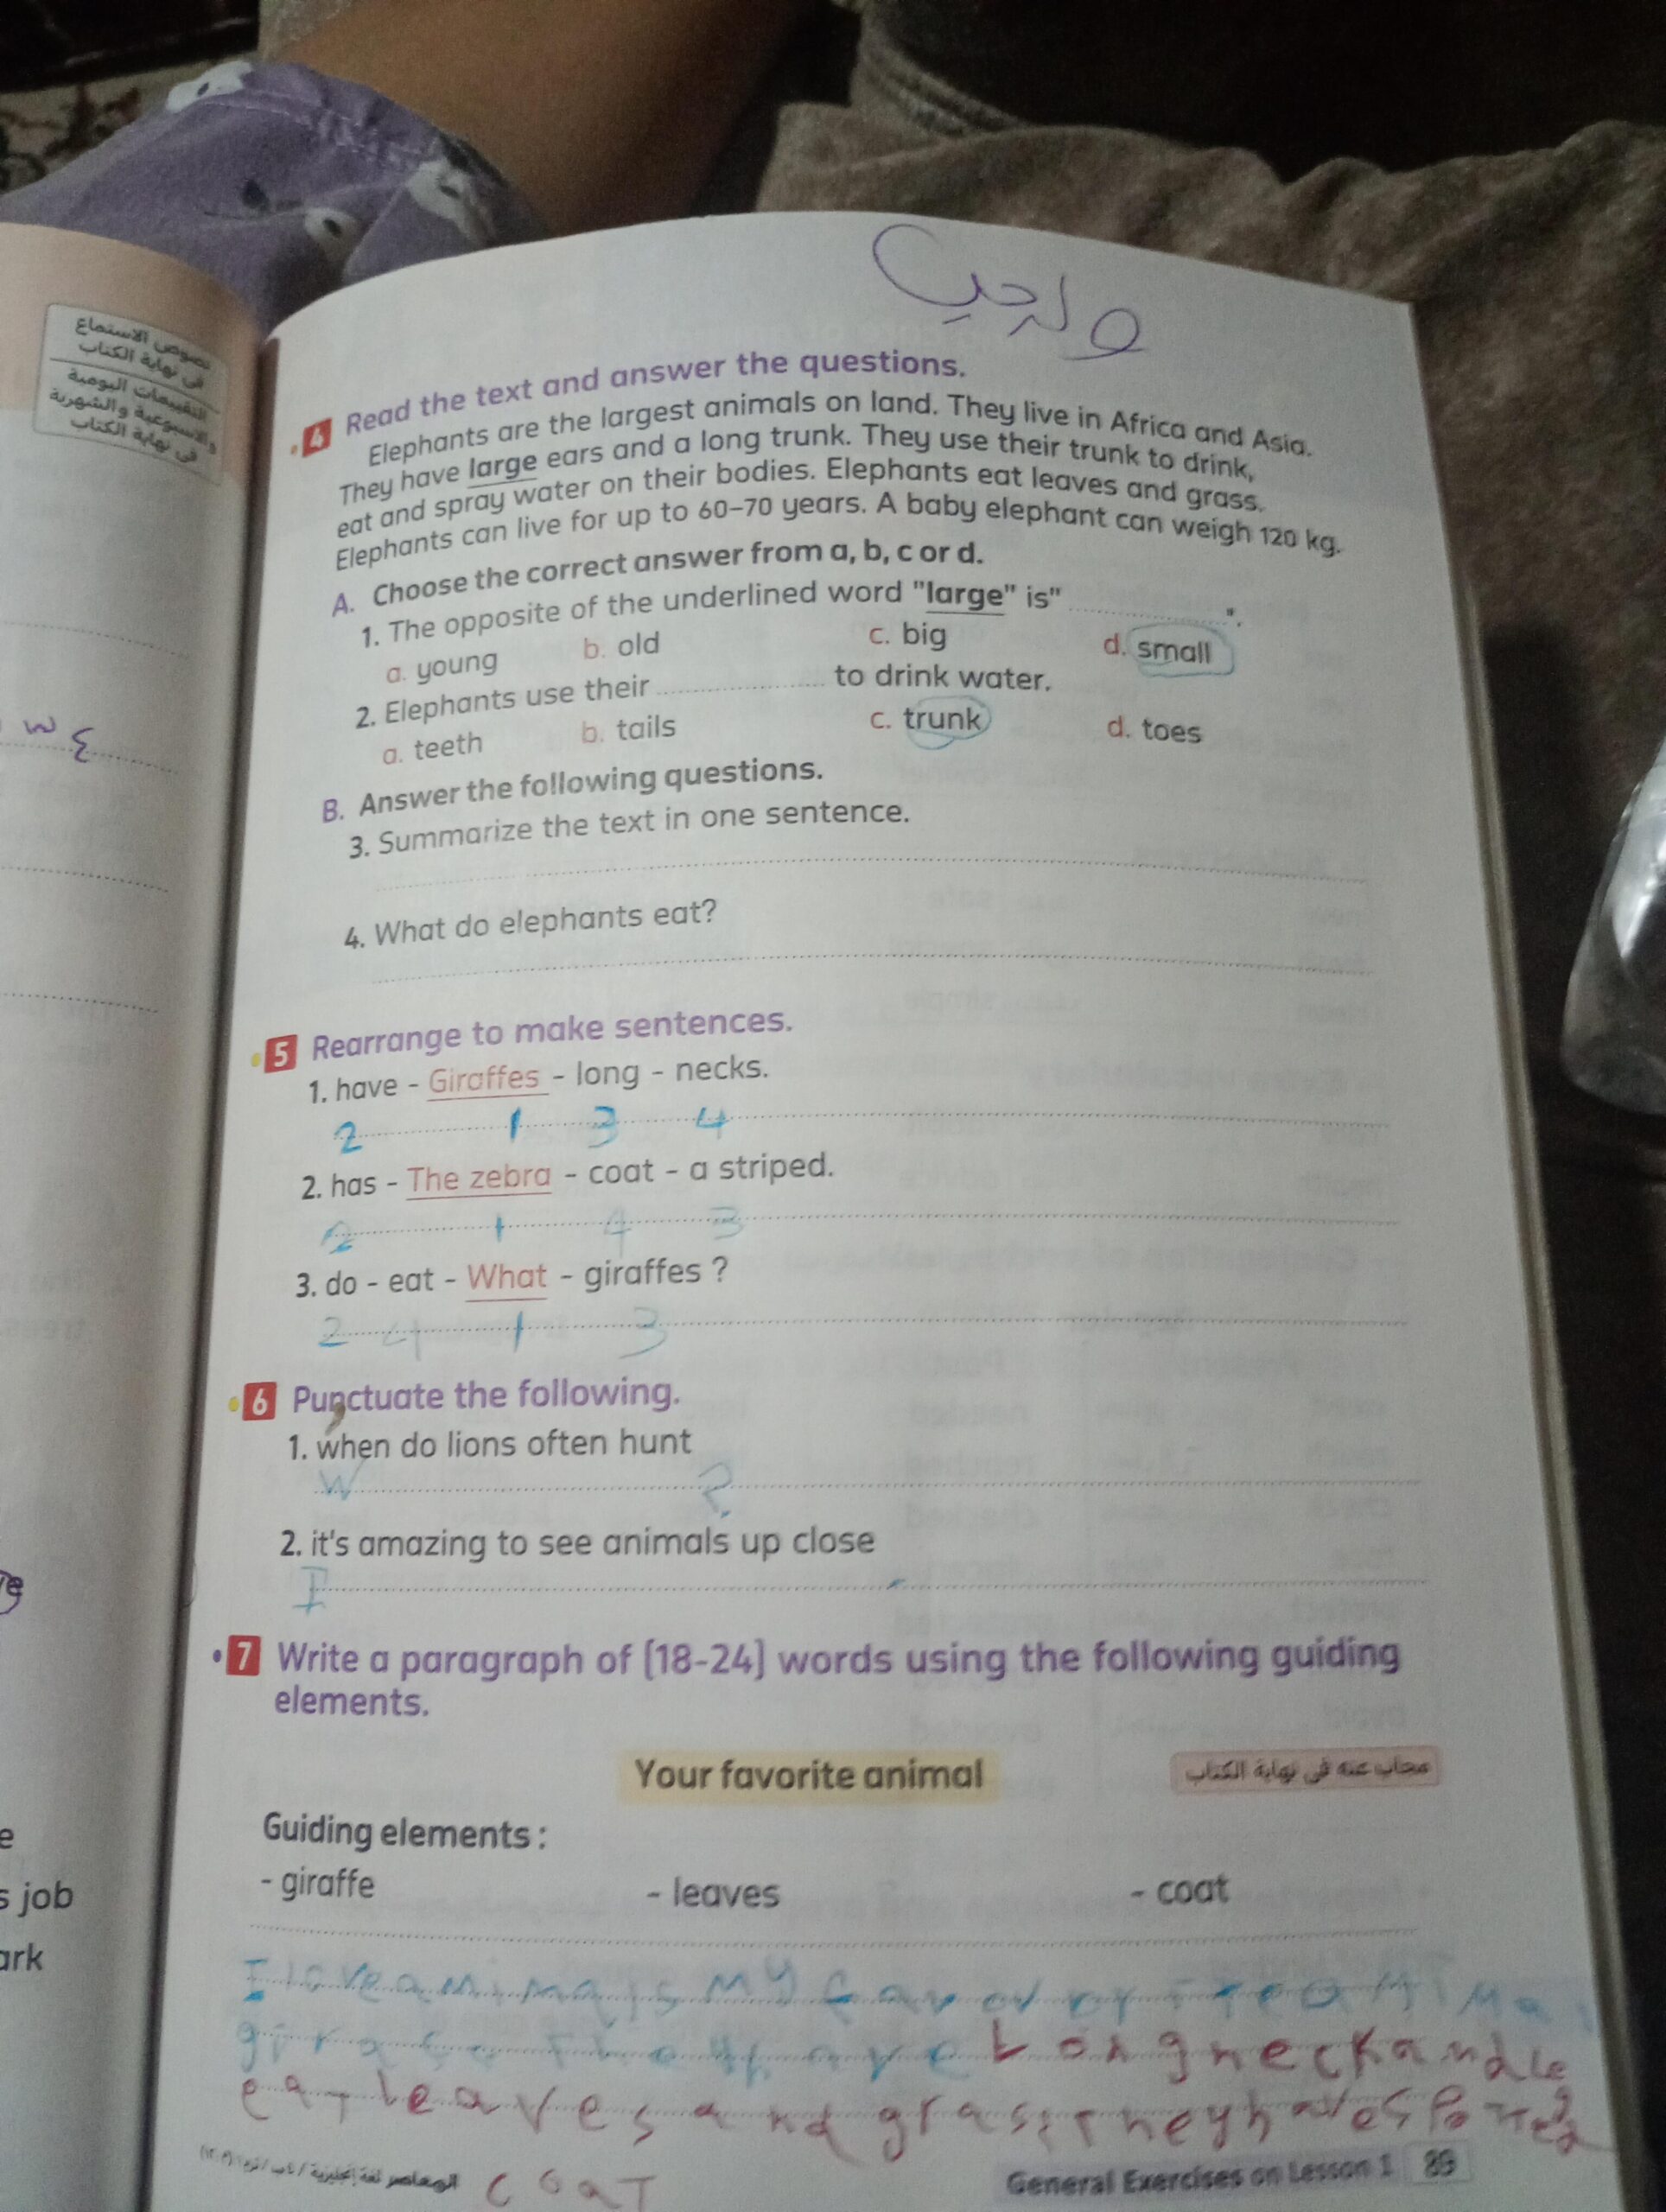 واجب
نصوص الاستماع
فى نهاية الكتاب
التقييمات اليومية
والأسبوعية والشهرية
فى نهاية الكتاب
4 Read the text and answer the questions.
Elephants are the largest animals on land. They live in Africa and Asia.
They have large ears and a long trunk. They use their trunk to drink,
eat and spray water on their bodies. Elephants eat leaves and grass.
Elephants can live for up to 60-70 years. A baby elephant can weigh 120 kg.
A. Choose the correct answer from a, b, c or d.
1. The opposite of the underlined word "large" is" ".
a. young b. old c. big d. small
2. Elephants use their to drink water.
a. teeth b. tails c. trunk d. toes
B. Answer the following questions.
3. Summarize the text in one sentence.
4. What do elephants eat?
5 Rearrange to make sentences.
1. have - Giraffes - long - necks.
2 1 3 4
2. has - The zebra - coat - a striped.
2 1 4 3
3. do - eat - What - giraffes ?
2 4 1 3
6 Punctuate the following.
1. when do lions often hunt
W ?
2. it's amazing to see animals up close
I .
7 Write a paragraph of (18-24) words using the following guiding
elements.
Your favorite animal
مجاب عنه فى نهاية الكتاب
Guiding elements :
- giraffe - leaves - coat
I love animals My
Long neck and
eat leaves and grass They have
coat
General Exercises on Lesson 1 89
s job
ark